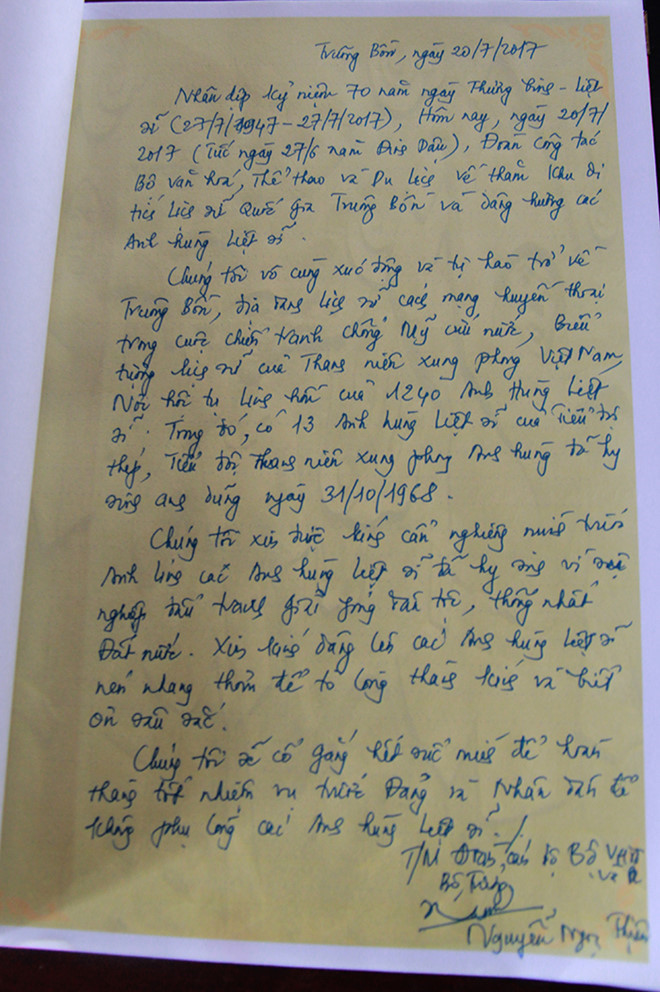 Truông Bồn, ngày 20/7/2017
Nhân dịp kỷ niệm 70 năm ngày Thương binh - Liệt
sĩ (27/7/1947 - 27/7/2017), Hôm nay, ngày 20/7/
2017 (Tức ngày 27/6 năm Đinh Dậu), Đoàn công tác
Bộ văn hoá, Thể thao và Du lịch về thăm Khu di
tích lịch sử Quốc gia Truông Bồn và dâng hương các
Anh hùng liệt sĩ.
Chúng tôi vô cùng xúc động và tự hào trở về
Truông Bồn, địa danh lịch sử cách mạng huyền thoại
trong cuộc chiến tranh chống Mỹ cứu nước, Biểu
tượng lịch sử của Thanh niên xung phong Việt Nam,
Nơi hội tụ linh hồn của 1240 Anh Hùng Liệt
sĩ. Trong đó, có 13 Anh hùng Liệt sĩ của Tiểu đội
thép, Tiểu đội Thanh niên xung phong Anh hùng đã hy
sinh anh dũng ngày 31/10/1968.
Chúng tôi xin được kính cẩn nghiêng mình trước
Anh linh các Anh hùng liệt sĩ đã hy sinh vì sự
nghiệp đấu tranh giải phóng dân tộc, thống nhất
Đất nước. Xin kính dâng lên các Anh hùng liệt sĩ
nén nhang thơm để tỏ lòng thành kính và biết
ơn sâu sắc.
Chúng tôi sẽ cố gắng hết sức mình để hoàn
thành tốt nhiệm vụ trước Đảng và Nhân dân để
không phụ lòng các Anh hùng liệt sĩ./.
T/M Đoàn cán bộ Bộ VHTT
và DL
Bộ trưởng
Nguyễn Ngọc Thiện